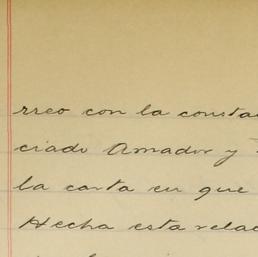 rreo con la consta
ciado Amador y
la carta en que
Hecha esta relac